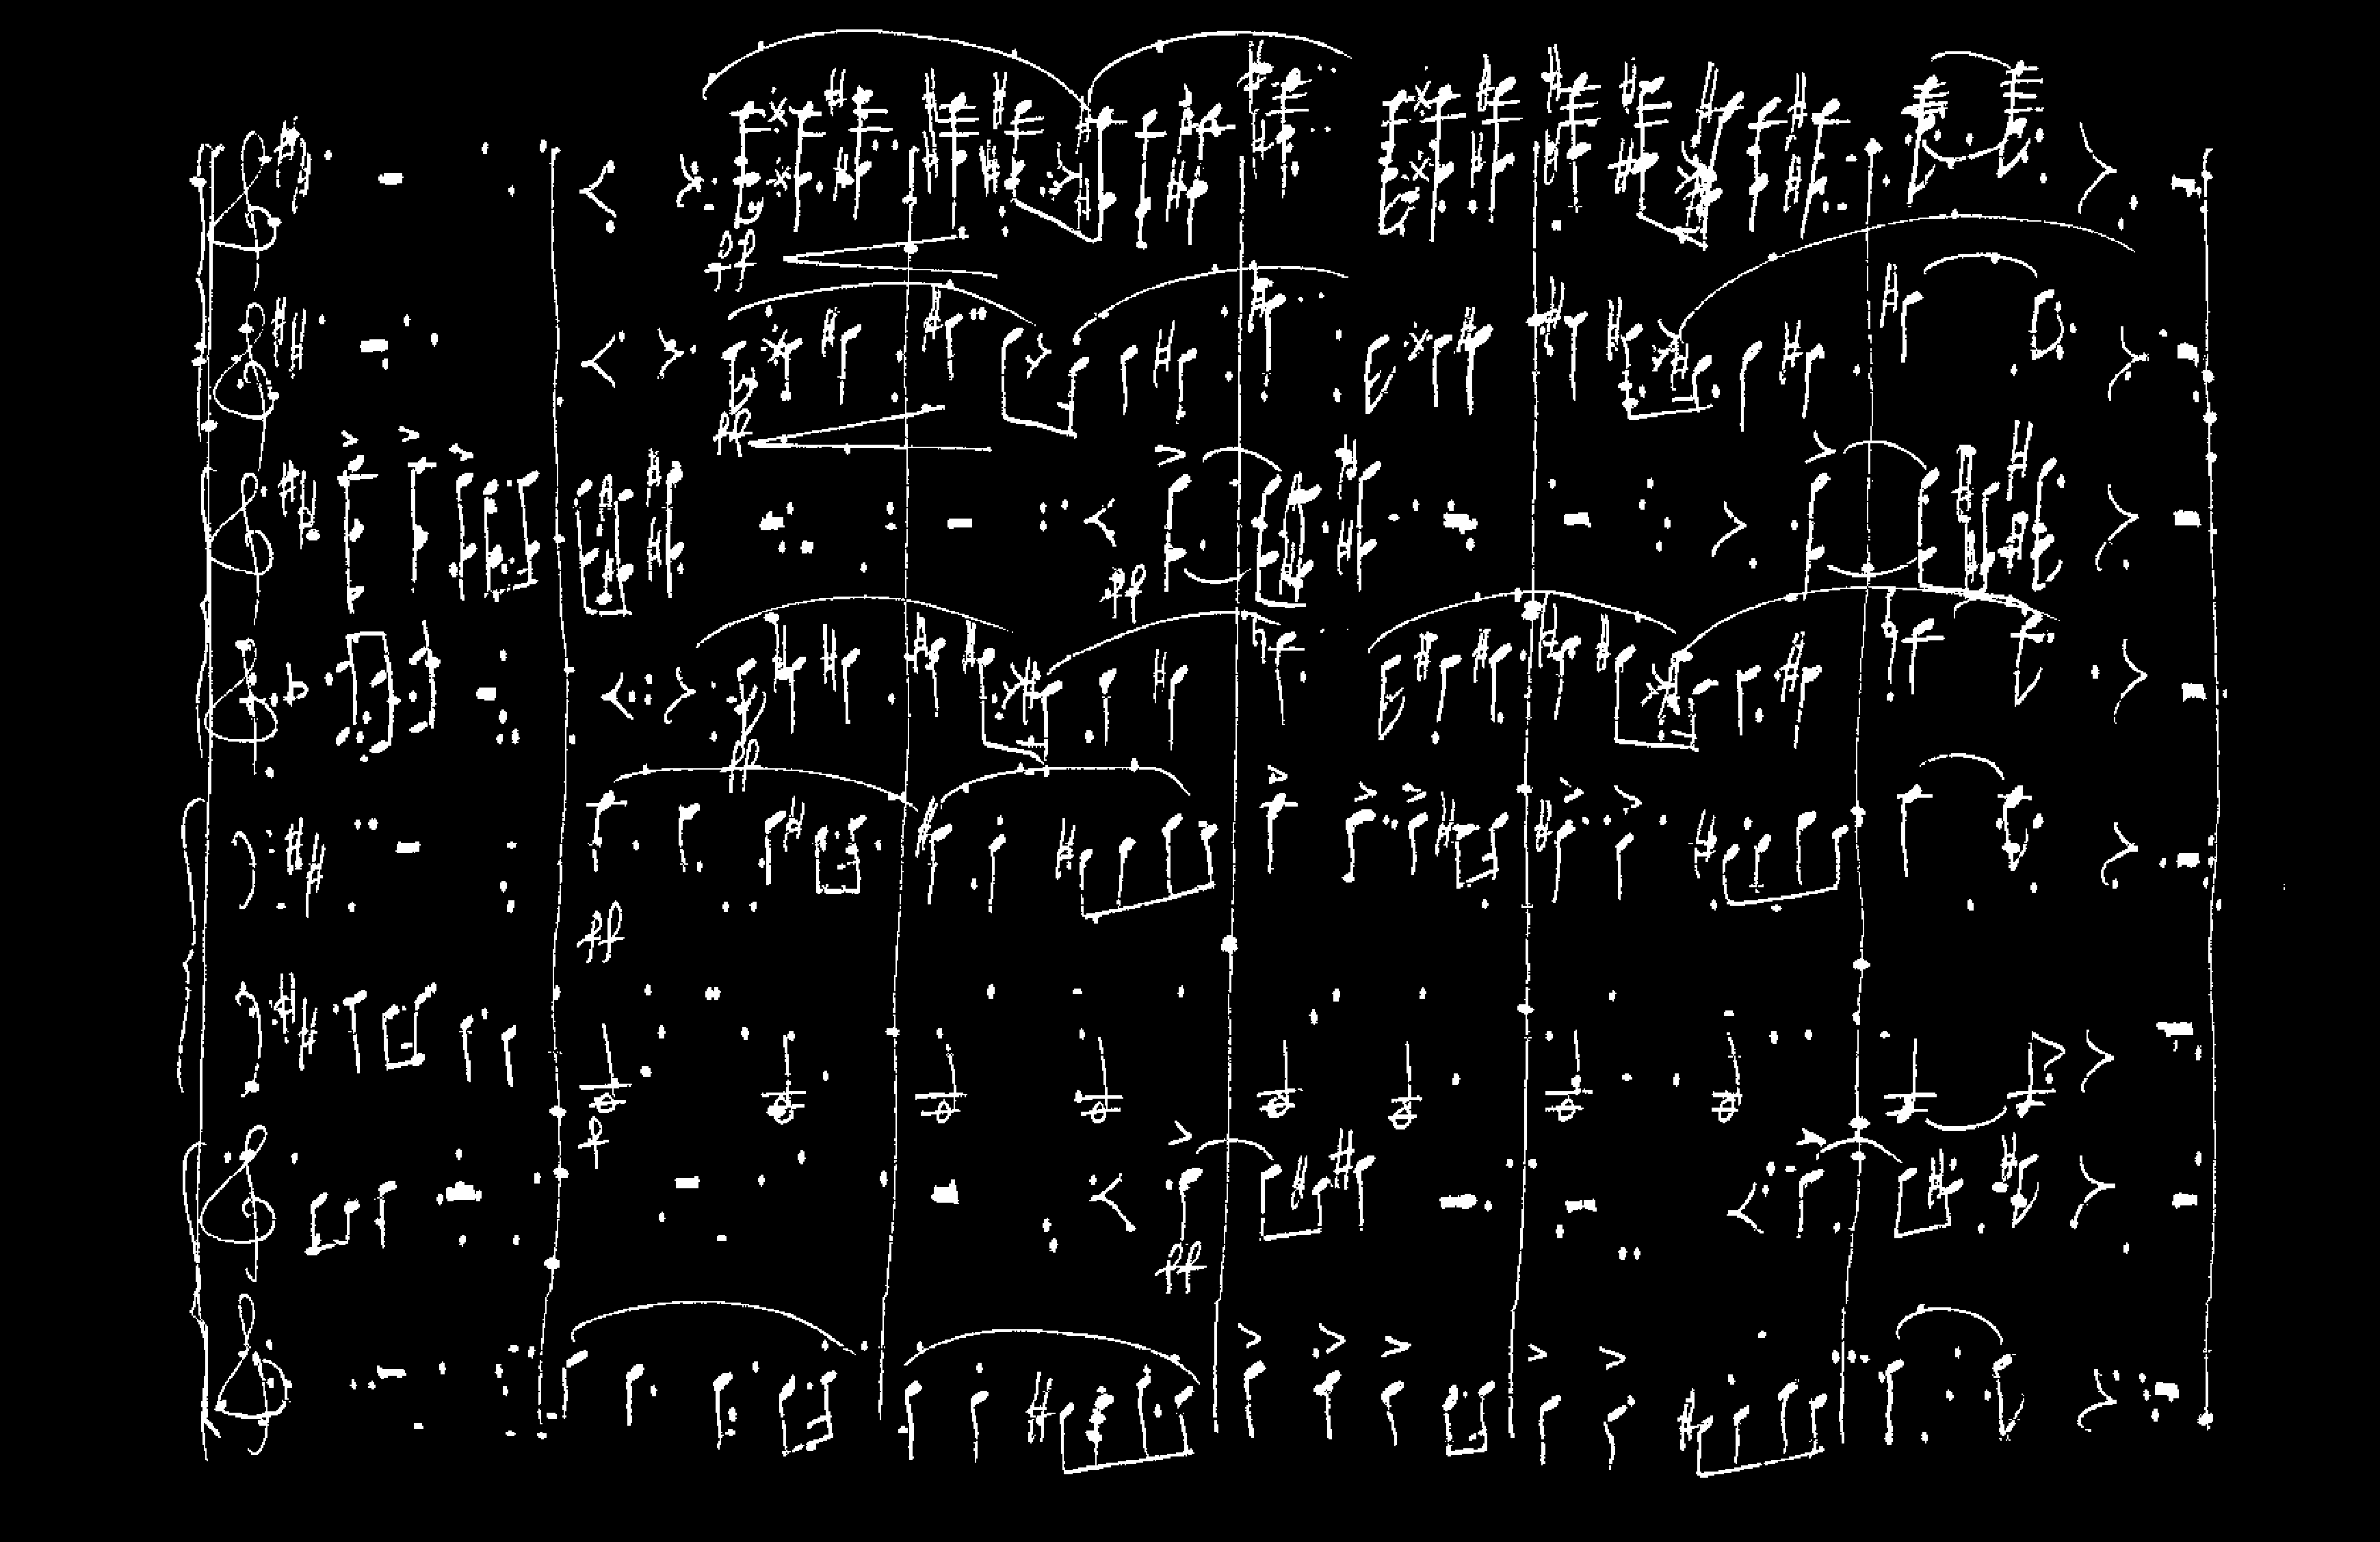 ff
ff
ff
ff
ff
p
ff